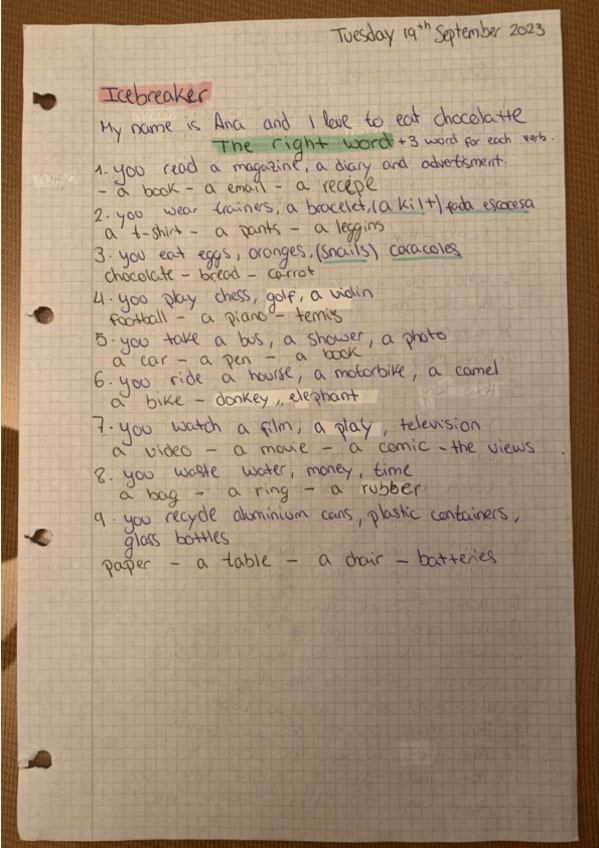 Tuesday 19th September 2023
Icebreaker
My name is Ana and I love to eat chocolatte
The right word +3 word for each verb.
1. you read a magazine, a diary and advertisment.
- a book - a email - a recepe
2. you wear trainers, a bracelet, (a kilt) fada escocesa
a t-shirt - a pants - a leggins
3. you eat eggs, oranges, (snails) caracoles
chocolate - bread - carrot
4. yoo play chess, golf, a violin
football - a piano - tenis
5. you take a bus, a shower, a photo
a car - a pen - a book
6. you ride a hourse, a motorbike, a camel
a bike - donkey, elephant
7. you watch a film, a play, television
a video - a movie - a comic - the views
8. you waste water, money, time
a bag - a ring - a rubber
9. you recycle aluminium cans, plastic containers,
glass bottles
paper - a table - a chair - batteries